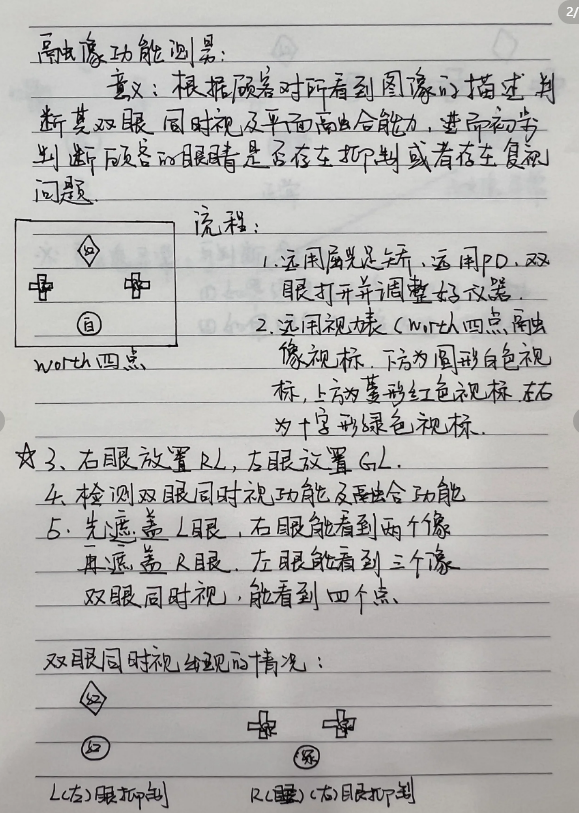 2/
融像功能测量：
意义：根据顾客对所看到图像的描述判
断其双眼同时视及平面融合能力，进而初步
判断顾客的眼睛是否存在抑制或者存在复视
问题.
流程：
1. 远用屈光足矫、远用PD、双
眼打开并调整好仪器.
红
绿 绿
白
worth四点
2. 远用视力表（worth四点融
像视标. 下方为圆形白色视
标，上方为菱形红色视标.左右
为十字形绿色视标.
☆3、右眼放置RL，左眼放置GL.
4. 检测双眼同时视功能及融合功能
5. 先遮盖L眼，右眼能看到两个像
再遮盖R眼.左眼能看到三个像
双眼同时视，能看到四个点.
双眼同时视出现的情况：
红
绿 绿
红
绿
L(左)眼抑制
R(右)眼抑制